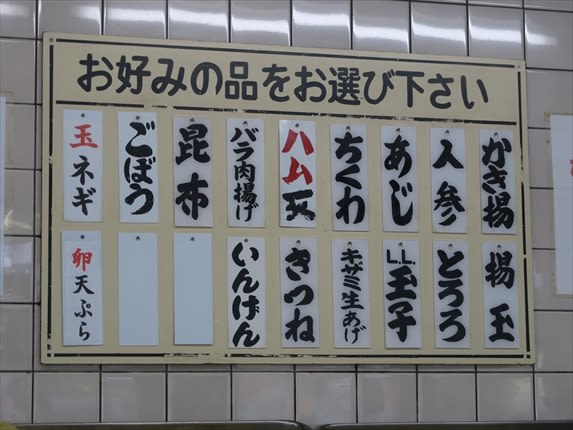 お好みの品をお選び下さい
かき揚
人参
あじ
ちくわ
ハム天
バラ肉揚げ
昆布
ごぼう
玉ネギ
揚玉
とろろ
L.L.玉子
キザミ生あげ
きつね
いんげん
卵天ぷら